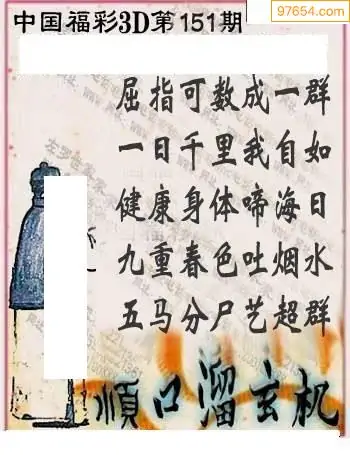 97654.com
中国福彩3D第151期
屈指可数成一群
一日千里我自如
健康身体啼海日
九重春色吐烟水
五马分尸艺超群
順口溜玄机